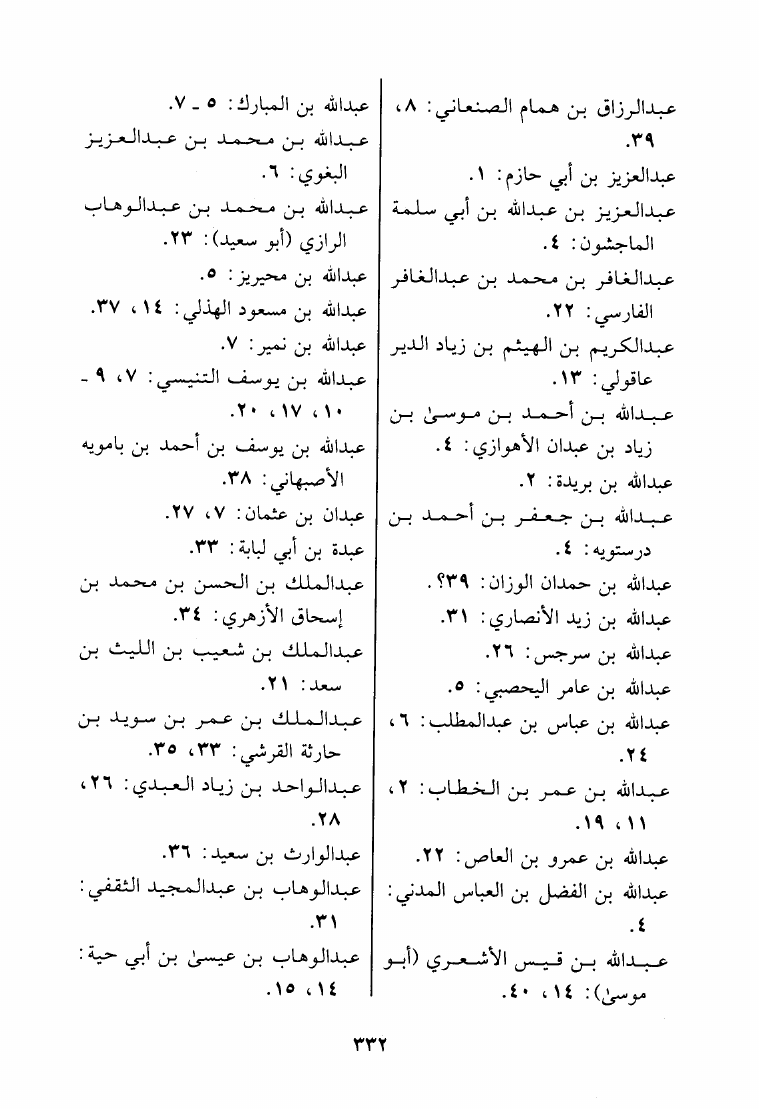 عبدالرزاق بن همام الصنعاني: ٨،
٣٩.
عبدالعزيز بن أبي حازم: ١.
عبدالعزيز بن عبدالله بن أبي سلمة
الماجشون: ٤.
عبدالغافر بن محمد بن عبدالغافر
الفارسي: ٢٢.
عبدالكريم بن الهيثم بن زياد الدير
عاقولي: ١٣.
عبدالله بن أحمد بن موسىٰ بن
زياد بن عبدان الأهوازي: ٤.
عبدالله بن بريدة: ٢.
عبدالله بن جعفر بن أحمد بن
درستويه: ٤.
عبدالله بن حمدان الوزان: ٣٩؟.
عبدالله بن زيد الأنصاري: ٣١.
عبدالله بن سرجس: ٢٦.
عبدالله بن عامر اليحصبي: ٥.
عبدالله بن عباس بن عبدالمطلب: ٦،
٢٤.
عبدالله بن عمر بن الخطاب: ٢،
١١، ١٩.
عبدالله بن عمرو بن العاص: ٢٢.
عبدالله بن الفضل بن العباس المدني:
٤.
عبدالله بن قيس الأشعري (أبو
موسىٰ): ١٤، ٤٠.
عبدالله بن المبارك: ٥ ـ ٧.
عبدالله بن محمد بن عبدالعزيز
البغوي: ٦.
عبدالله بن محمد بن عبدالوهاب
الرازي (أبو سعيد): ٢٣.
عبدالله بن محيريز: ٥.
عبدالله بن مسعود الهذلي: ١٤، ٣٧.
عبدالله بن نمير: ٧.
عبدالله بن يوسف التنيسي: ٧، ٩ ـ
١٠، ١٧، ٢٠.
عبدالله بن يوسف بن أحمد بن بامويه
الأصبهاني: ٣٨.
عبدان بن عثمان: ٧، ٢٧.
عبدة بن أبي لبابة: ٣٣.
عبدالملك بن الحسن بن محمد بن
إسحاق الأزهري: ٣٤.
عبدالملك بن شعيب بن الليث بن
سعد: ٢١.
عبدالملك بن عمر بن سويد بن
حارثة القرشي: ٣٣، ٣٥.
عبدالواحد بن زياد العبدي: ٢٦،
٢٨.
عبدالوارث بن سعيد: ٣٦.
عبدالوهاب بن عبدالمجيد الثقفي:
٣١.
عبدالوهاب بن عيسىٰ بن أبي حية:
١٤، ١٥.
٣٣٢